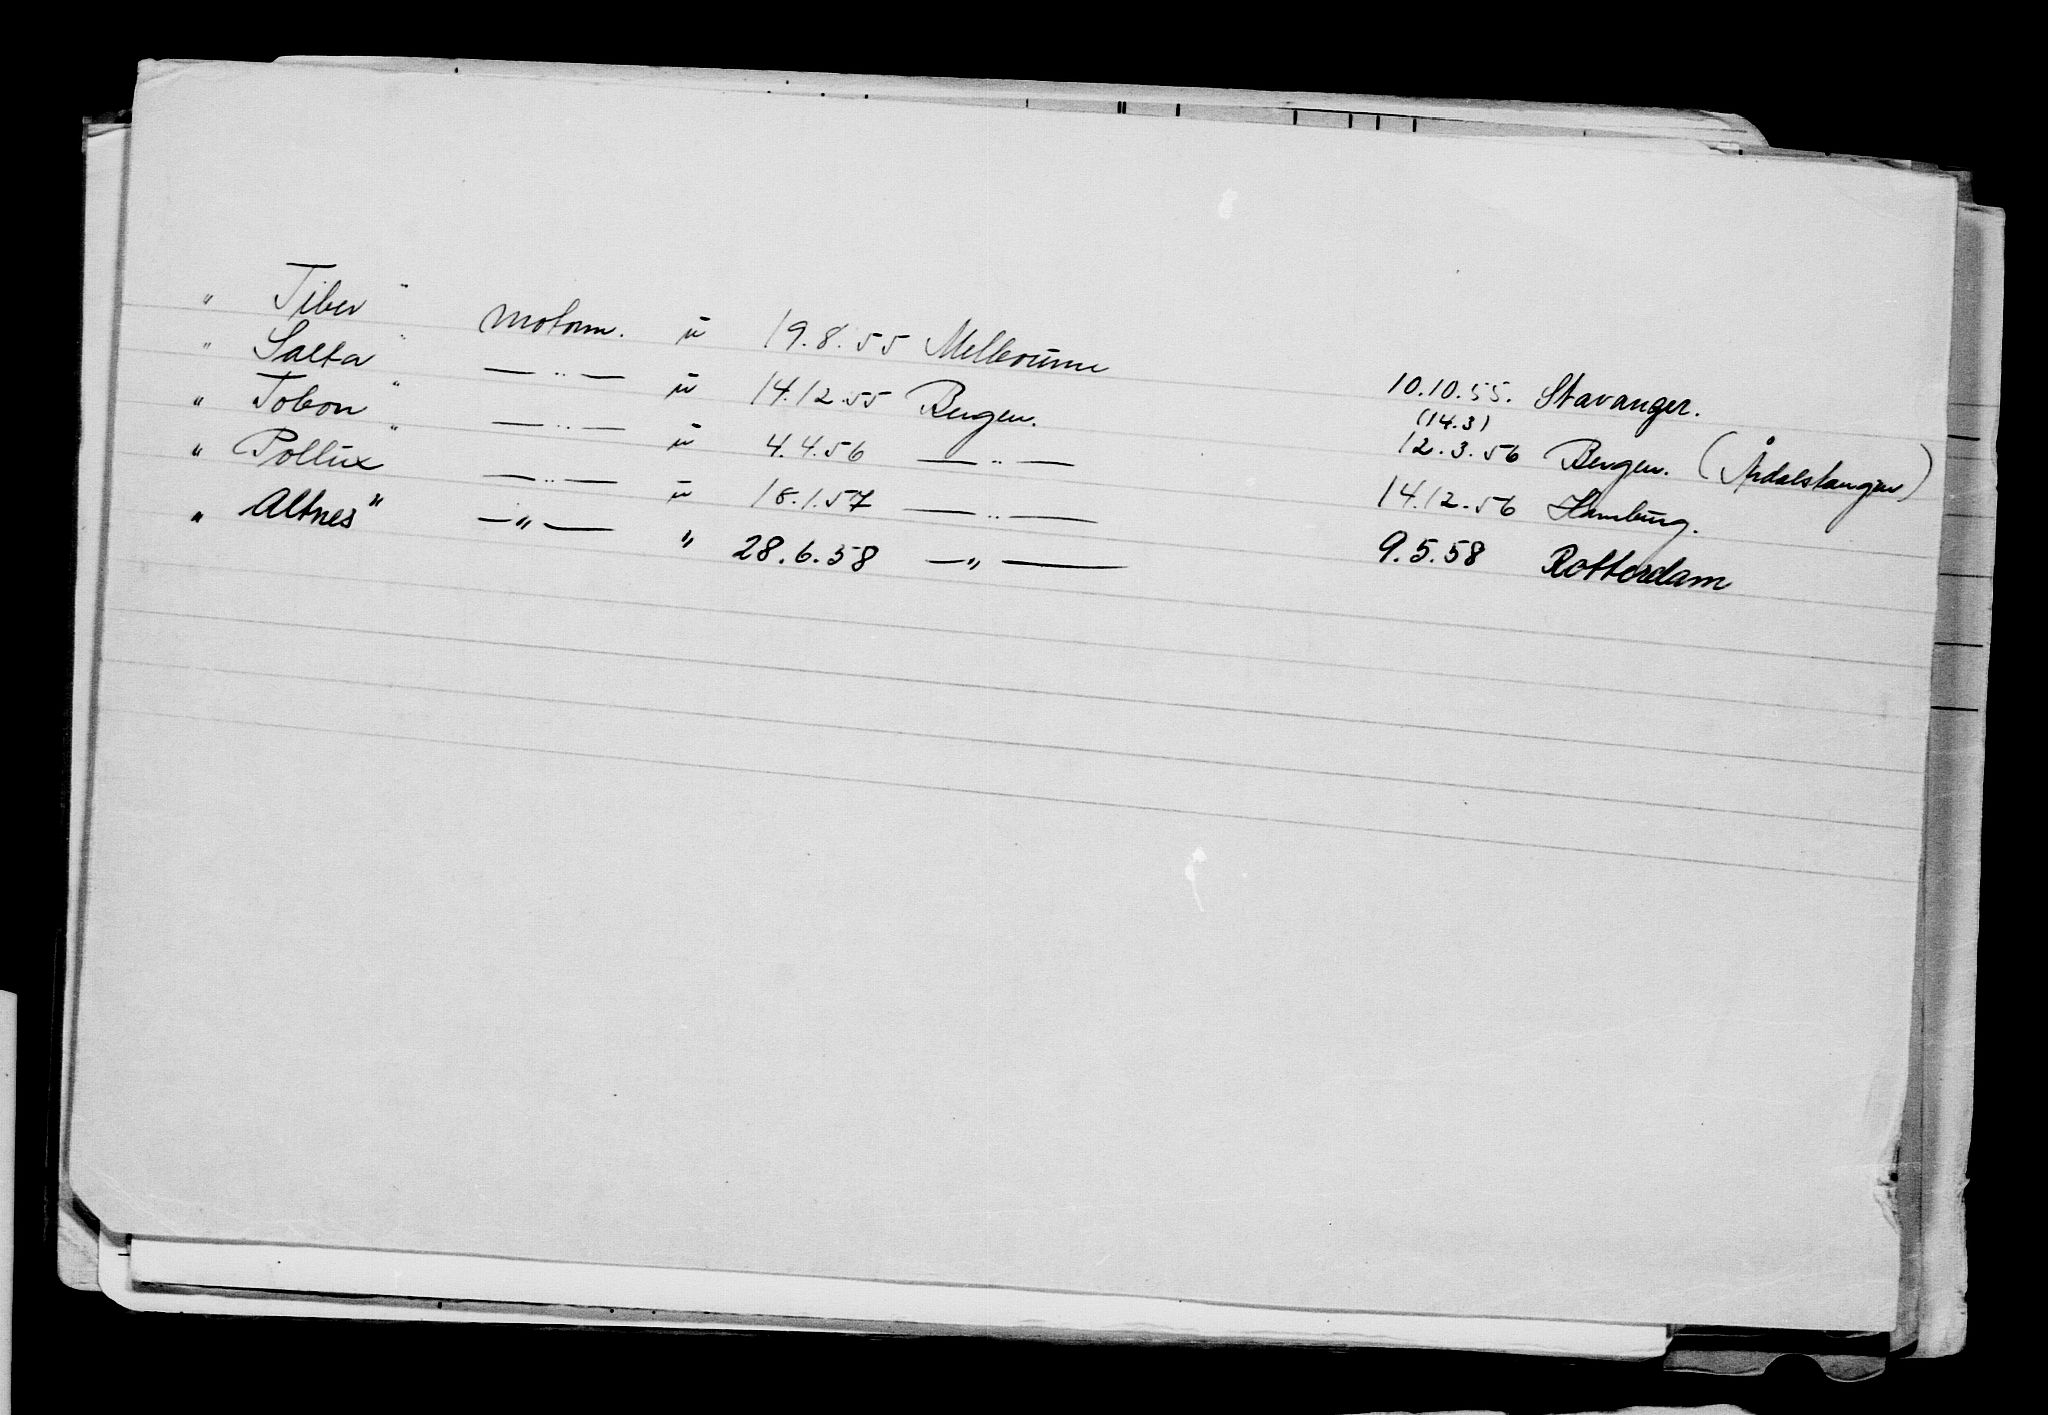 " Tiber " motorm. u 19.8.55 Melbourne 10.10.55. Stavanger.
(14.3)
" Salta " — " — u 14.12.55 Bergen. 12.3.56 Bergen. (Årdalstangen)
" Tobon " — " — u 4.4.56 — " — 14.12.56 Hamburg.
" Pollux " — " — u 18.1.57 — " — 9.5.58 Rotterdam
" Altnes" — " — " 28.6.58 — " —